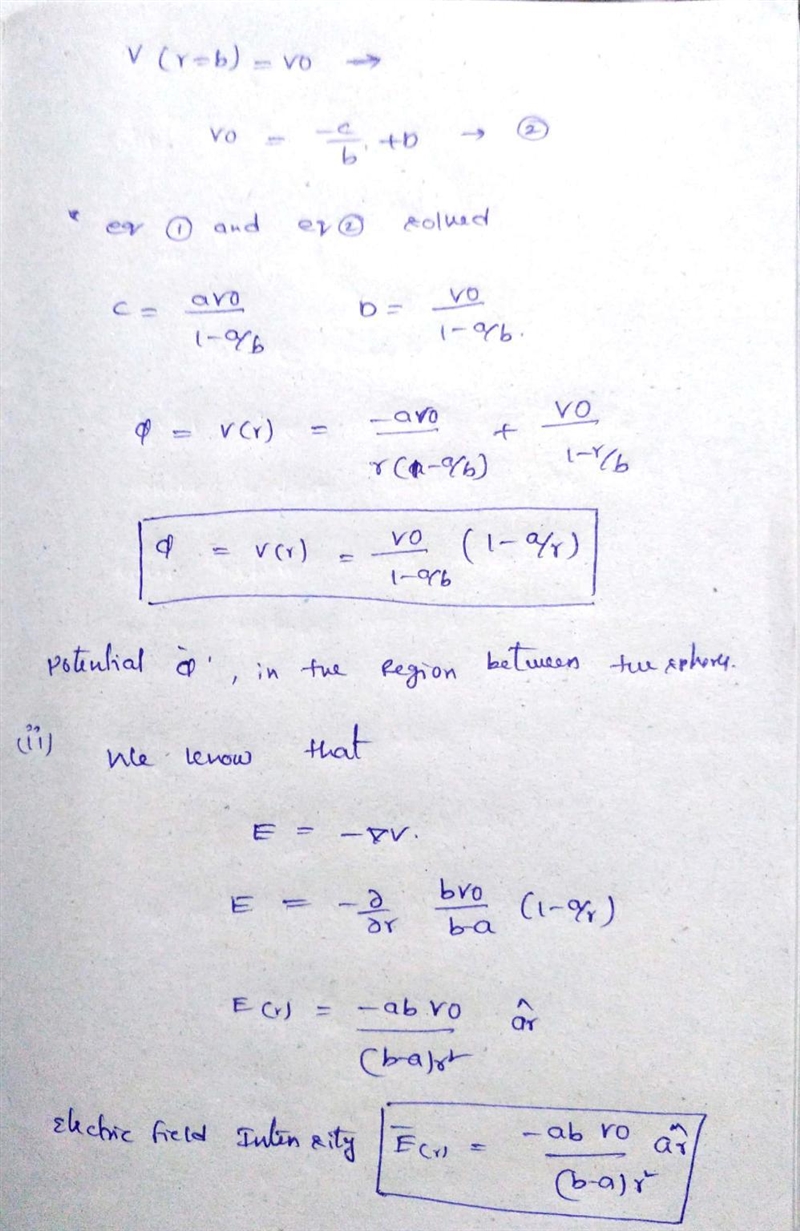 V (r=b) = vo →
vo = -c/b + D → ②
* eq ① and eq ② solved
c = avo/1-a/b D = vo/1-a/b.
φ = v(r) = -avo/r(1-a/b) + vo/1-r/b
φ = v(r) = vo/1-a/b (1-a/r)
potential φ', in the Region between the sphers.
(ii) We know that
E = -∇V.
E = -∂/∂r bvo/b-a (1-a/r)
E(r) = -ab vo/(b-a)r² âr
Electric field Intensity E̅(r) = -ab vo/(b-a)r² âr